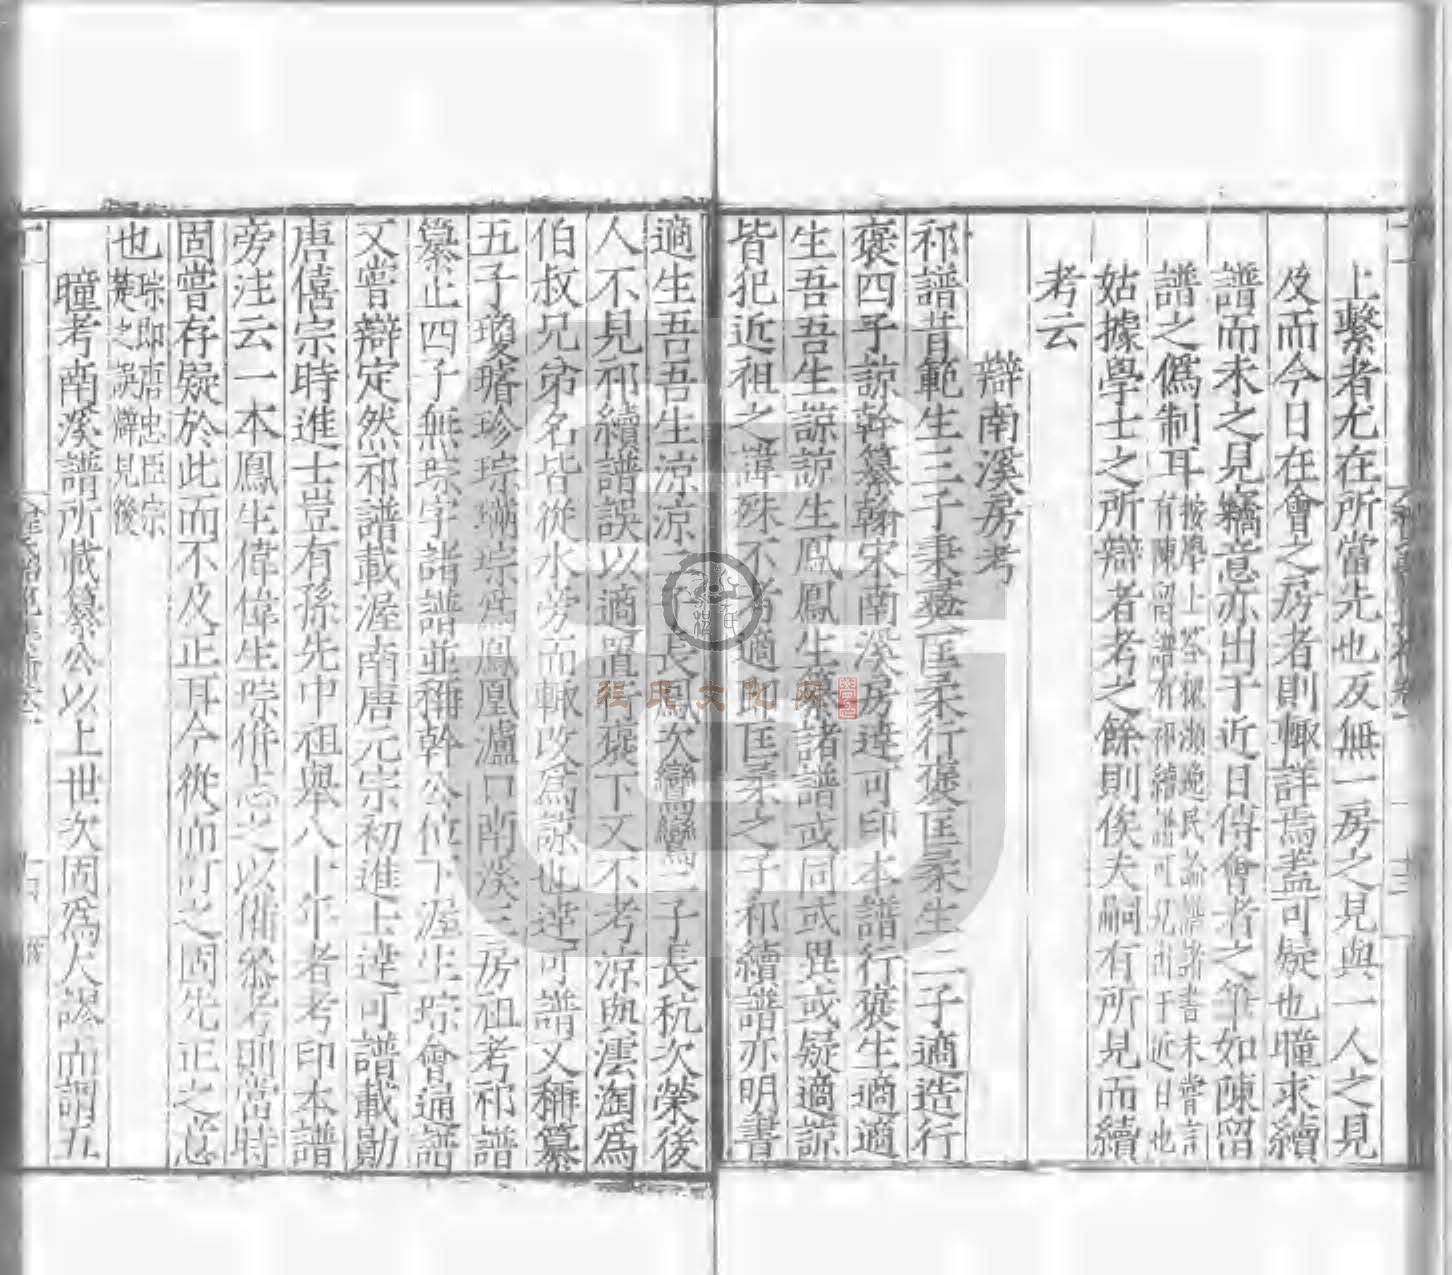 上繫者尤在所當先也及無一房之見與一人之見
及而今日在會之房者則輙詳焉蓋可疑也曈求續
譜而未之見竊意亦出于近日侍會者之筆如陳留
譜之僞制耳按學士荅槐瀕逸民論譜書未嘗言
有陳留譜有祁續譜可見出于近日也
姑據學士之所辯者考之餘則俟夫嗣有所見而續
考云
辯南溪房考
祁譜昔範生三子秉彜匡柔行褒匡柔生二子適造行
褒四子諒幹纂翰宋南溪房逹可印本譜行褒生適適
生吾吾生諒諒生鳳鳳生諸譜或同或異或疑適諒
皆犯近祖之諱殊不考適即匡柔之子祁續譜亦明書
適生吾吾生涼涼二子長鳳次鸞鸞二子長秔次榮後
人不見祁續譜誤以適置行褒下又不考涼與澐淘為
伯叔兄弟名皆從水旁而輙改為諒也逹可譜又稱纂
五子瓊瑃珍琮瓛琮為鳳凰瀘口南溪三房祖考祁譜
纂止四子無琮字諸譜並稱幹公位下渥生琮會通譜
又嘗辯定然祁譜載渥南唐元宗初進士逹可譜載勛
唐僖宗時進士豈有孫先中祖舉八十年者考印本譜
旁注云一本鳳生偉偉生琮併志之以俻叅考則當時
固嘗存疑於此而不及正耳今從而訂之固先正之意
也琮即唐忠臣宗
楚之誤辯見後
曈考南溪譜所載纂公以上世次固為大謬而謂五
程氏文化网